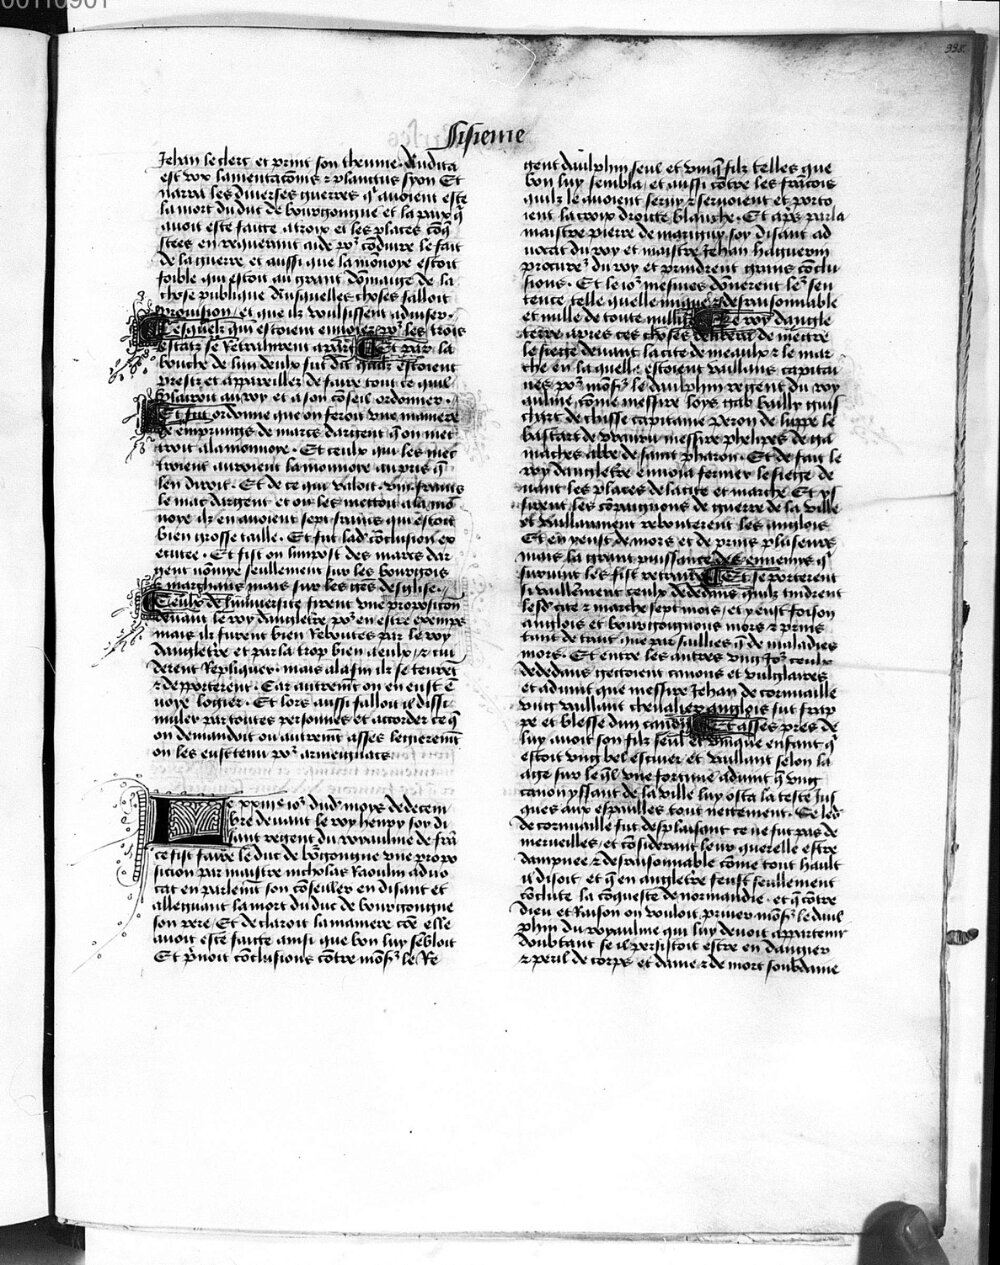 338
Sisieme
Jehan le clerc et print son theume. Audita
est vox lamentacionis & planctus syon Et
narra les diverses guerres q̄ avoient este
la mort du duc de bourgongne et la paix q̄
avoit este faicte a troix et les places conq̄
stees en requerant aide po2 conduire le fait
de la guerre et aussi que la monnoye estoit
foible qui estoit au grant dommaige de la
chose publique Ausquelles choses falloit
provision et que ilz voulsissent adviser.
Lesquelz qui estoient envoiez po2 les trois
estatz se retrahirent a part Et par la
bouche de lun deulx fut dit quilz estoient
prestz et appareillez de faire tout ce quil
plairoit au roy et a son conseil ordonner.
Et fut ordonne que on feroit une maniere
de emprungs de marcs dargent q̄ on met
troit a la monnoye. Et ceulx qui les met
troient auroient la monnoye au pris q̄
len diroit. Et de ce qui valoit viii. frans
le marc dargent et on les mettoit a la mō
noye ilz en avoient sept frans qui estoit
bien grosse taille. Et fut lad̄ conclusion ex
ecutee. Et fist on limpost des marcs dar
gent nō mye seullement sur les bourgois
& marchans mais sur les gēs deglise.
Ceulx de luniversite firent une proposicion
devant le roy dangletre po2 en estre exemps
mais ilz furent bien reboutes par le roy
dangletre et parla trop bien a eulx & cui
derent repliquer. mais a la fin ilz se teurēt
& deporterent. Car autremēt on en eust ē
voye logier. Et lors aussi falloit il dissi
muler par toutes personnes et accorder ce q̄
on demandoit ou autremēt asses legieremēt
on les eust tenu po2 armeignacs
Le xxiiie io2 dud̄ moys de decem
bre devant le roy henry soy di
sant regent du royaulme de frā
ce fist faire le duc de bōrgongne une propo
sicion par maistre nicholas Raoulin advo
cat en parlemt son conseiller en disant et
alleguant la mort du duc de bourgongne
son pere. Et declaroit la maniere cōe elle
avoit este faicte ainsi que bon luy sēbloit
Et p̄noit conclusions cōtre mōss2 le Re
gent daulphin seul et uniq̄ filz telles que
bon luy sembla. et aussi cōtre les frācois
quilz le avoient servy & servoient et porto
ient la croix droitte blanche. Et ap̄s parla
maistre pierre de marigny soy disant ad
vocat du roy et maistre Jehan haguenin
procure2 du roy et prindrent grans cōclu
sions. Et le io2 mesmes dōnerent le2 sen
tence telle quelle inique & desraisonnable
et nulle de toute nullite Le roy dangle
terre apres ces choses delibera de mettre
le siege devant la cite de meaulx & le mar
che en la quelle estoient vaillans capitai
nes po2 mōss2 le daulphin regent du roy
aulme, cōme messire loys gab bailly guis
chart de chisse capitaine peron de luppe le
bastart de vauru messire phelipes de ga
maches abbe de saint pharon. Et de fait le
roy dangletre envoia fermer le siege de
vant les places de la cite et marche Et ys
sirent les cōpaignons de guerre de la ville
et vaillanment rebouterent les anglois
Et en y eust de mors et de prins plusieurs
mais la grant puissance des ennemys q̄
survint les fist retraire Et se porterent
si vaillanment ceulx dededans quilz tindrent
lesd̄ cite & marche sept mois, et y eust foison
anglois et bourgoignons mors & prins
tant de trait que par saillies q̄ de maladies
mors. Et entre les autres ung io2 ceulx
dededans gectoient canons et vulglaires
et advint que messire Jehan de cornuaille
ung vaillant chevalier anglois fut frap
pe et blesse dun canon Et asses pres de
luy avoit son filz seul et unique enfant q̄
estoit ung bel escuier et vaillant selon la
age sur le q̄l une fortune advint q̄ ung
canon yssant de la ville luy osta la teste Jus
ques aux espaulles tout nettement. Ce led̄
de cornuaille fut desplaisant ce ne fut pas de
merveilles, et considerant leur querelle estre
dampnee & desraisonnable cōme tout hault
il disoit et q̄ en angletre feust seullement
cōclute la cōqueste de normandie. et q̄ cōtre
dieu et Raison on vouloit priver mōss2 le daul
phin du royaulme qui luy devoit appartenir
doubtant se il persistoit estre en dangier
& peril de corps et dame & de mort soubdaine